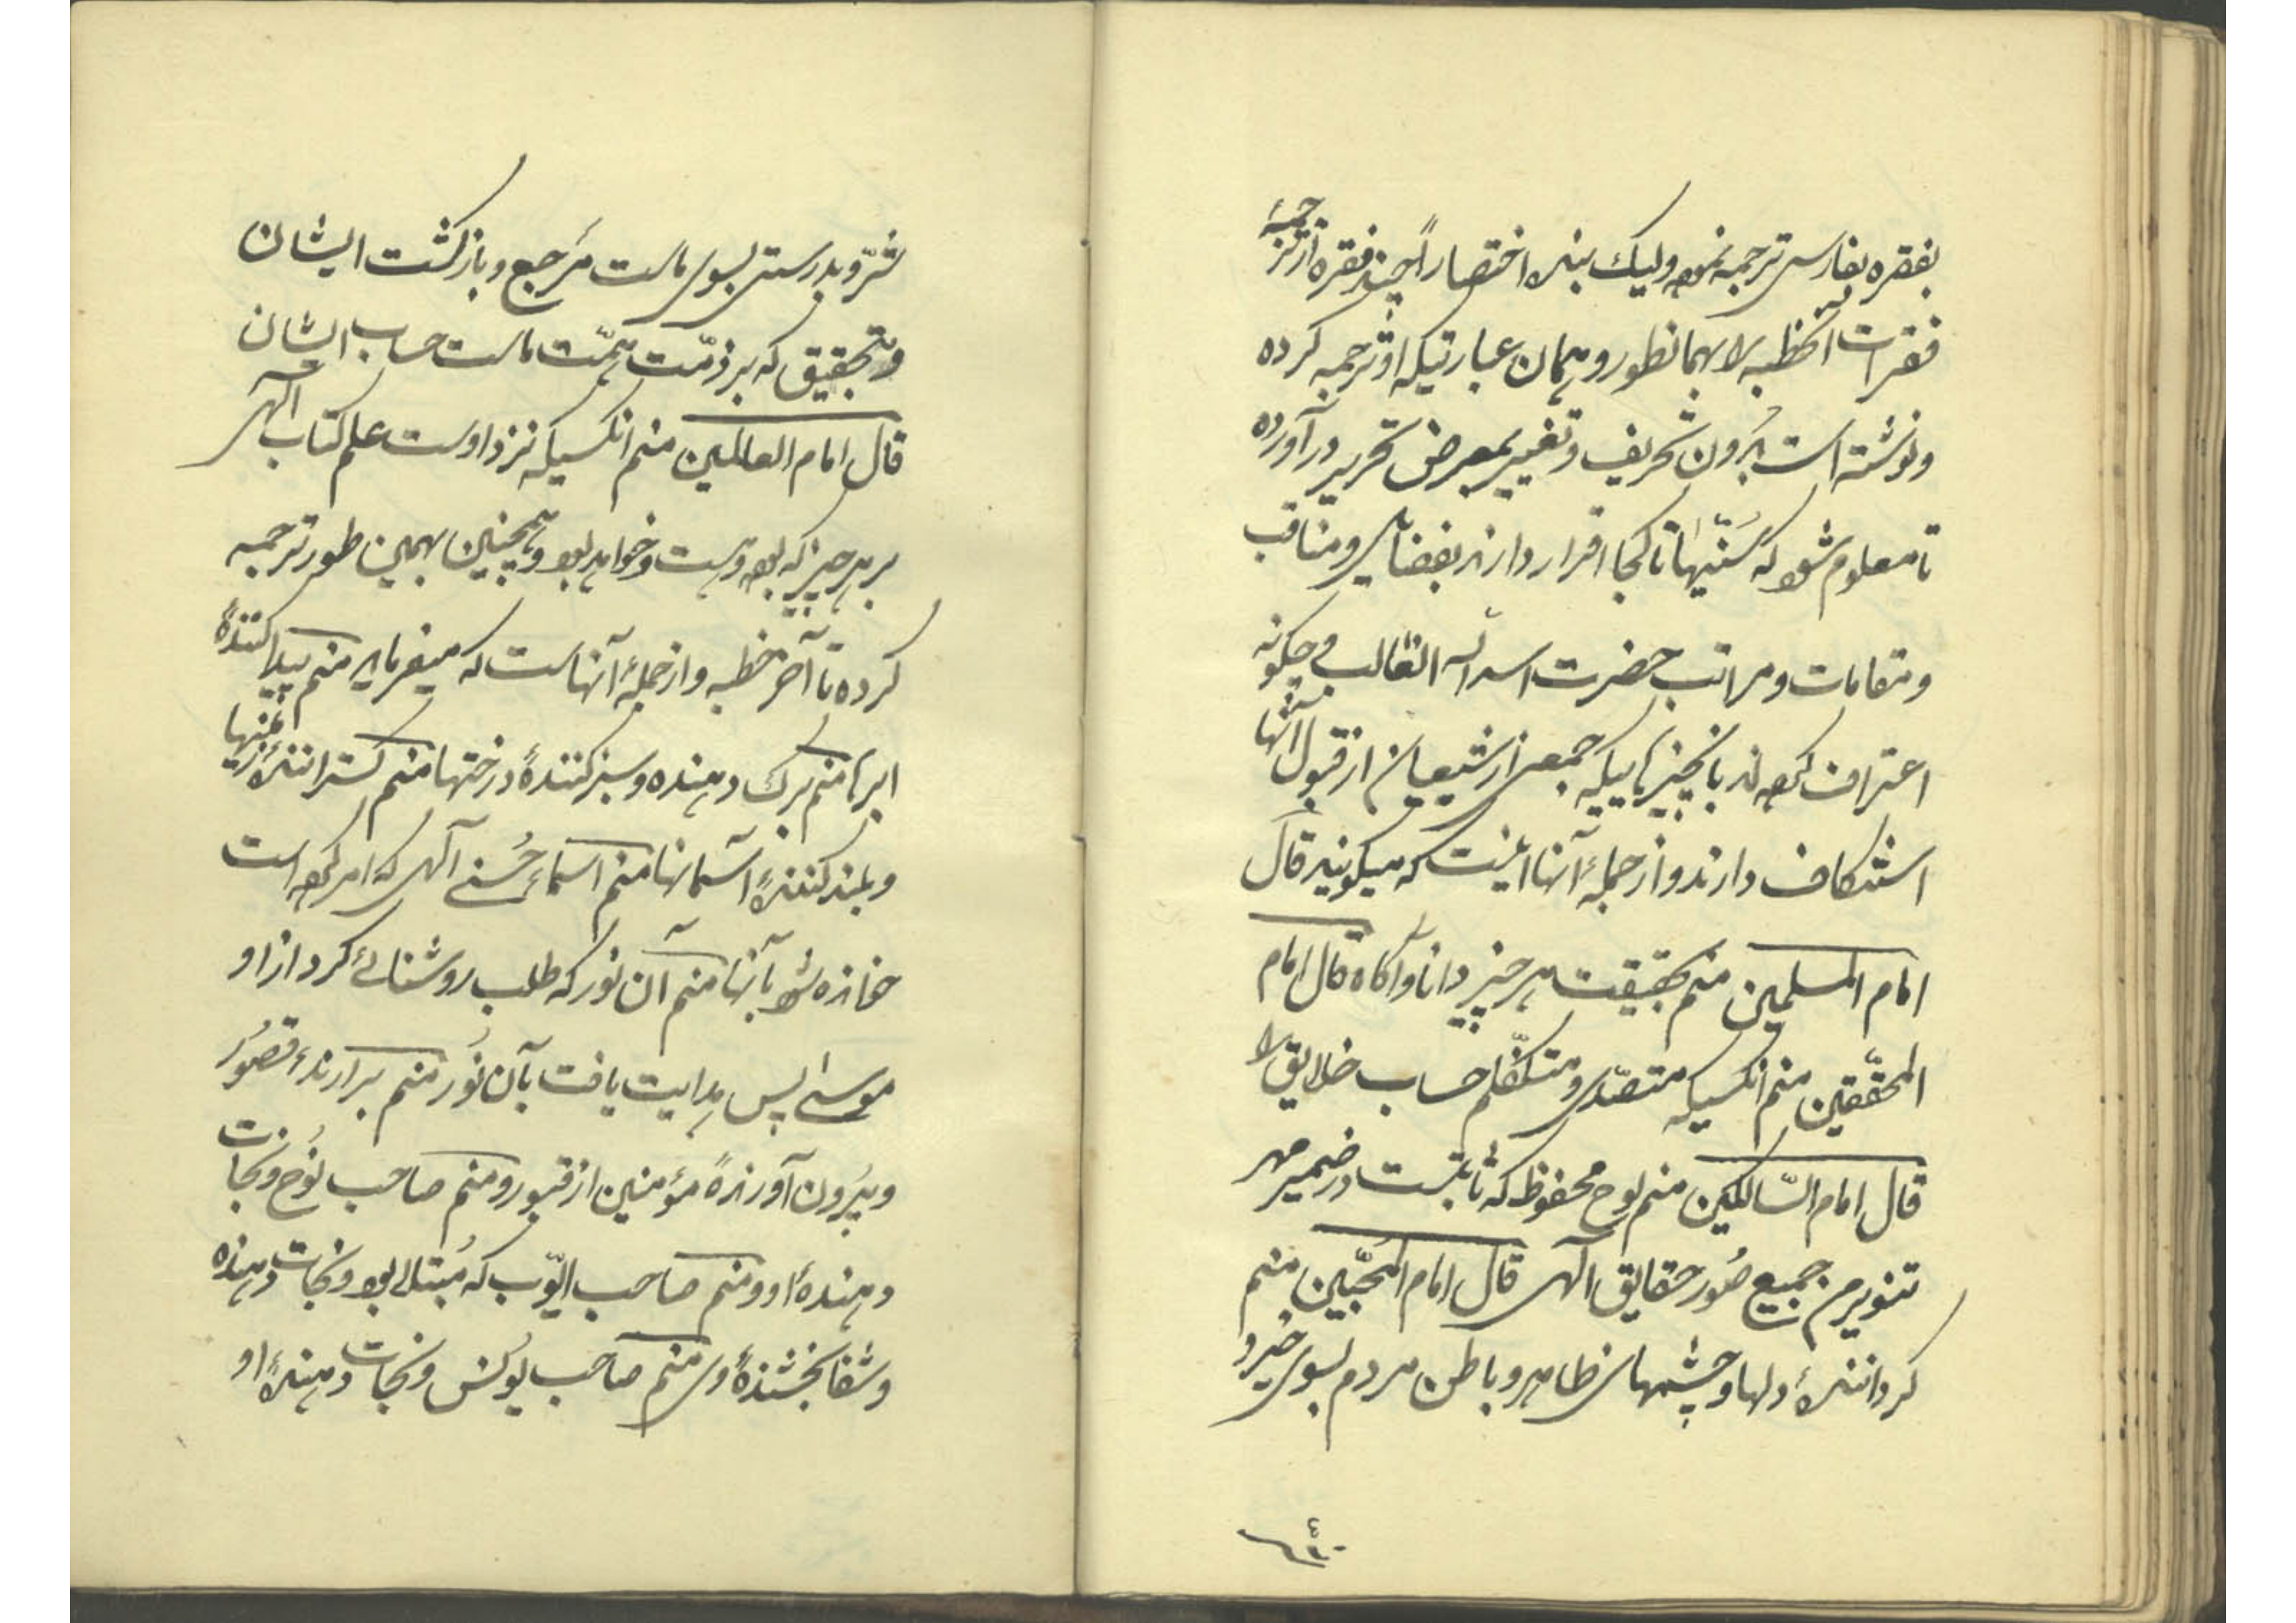 بفقره بفارسی ترجمه نموده ولیک بنده اختصاراً چند فقره از ترجمهٔ
فقرات آنخطبه را بهمانطور و همان عبارتیکه او ترجمه کرده
و نوشته است بدون تحریف و تغییر بمعرض تحریر درآورده
تا معلوم شود که سنّیها تا کجا اقرار دارند بفضایل و مناقب
و مقامات و مراتب حضرت اسد الله الغالب و چکونه
اعتراف کرده اند بانچیزهاییکه جمعی از شیعیان از قبول آنها
استنکاف دارند و از جملهٔ آنها اینست که میکویند قال
امام المسلمین منم بحقیقت هر چیز دانا و آکاه قال امام
المحقّقین منم آنکسیکه متصدّی و متکفّلم حساب خلایق را
قال امام السّالکین منم لوح محفوظ که ثابتست در ضمیر مهر
تنویرم جمیع صُور حقایق الهی قال امام المُحبّین منم
کردانندهٔ دلها و چشمهای ظاهر و باطن مردم بسوی خیر و
شرّ و بدرستی بسوی ماست مَرجع و بازکشت ایشان
و بتحقیق که بر ذمّت همّت ماست حساب ایشان
قال امام العالمین منم آنکسیکه نزد اوست علم کتاب الهی
بر هر چیز که بوده و هست و خواهد بود و همچنین بهمین طور ترجمه
کرده تا آخر خطبه و از جملهٔ آنهاست که میفرماید منم پیدا کنندهٔ
ابرها منم برک دهنده و سبز کنندهٔ درختها منم کسترانندهٔ زمینها
و بلند کنندهٔ آسمانها منم اسماء حُسنی الهی که امر کرده است
خوانده شود بآنها منم آن نور که طلب روشنائی کرد از او
موسی پس هدایت یافت بآن نُور منم برآرندهٔ قصُور
و بیرُون آورندهٔ مؤمنین از قبور و منم صاحب نُوح و نجات
دهندهٔ او و منم صاحب ایّوب که مُبتلا بود و نجات دهنده
و شفا بخشندهٔ وی منم صاحب یُونس و نجات دهندهٔ او